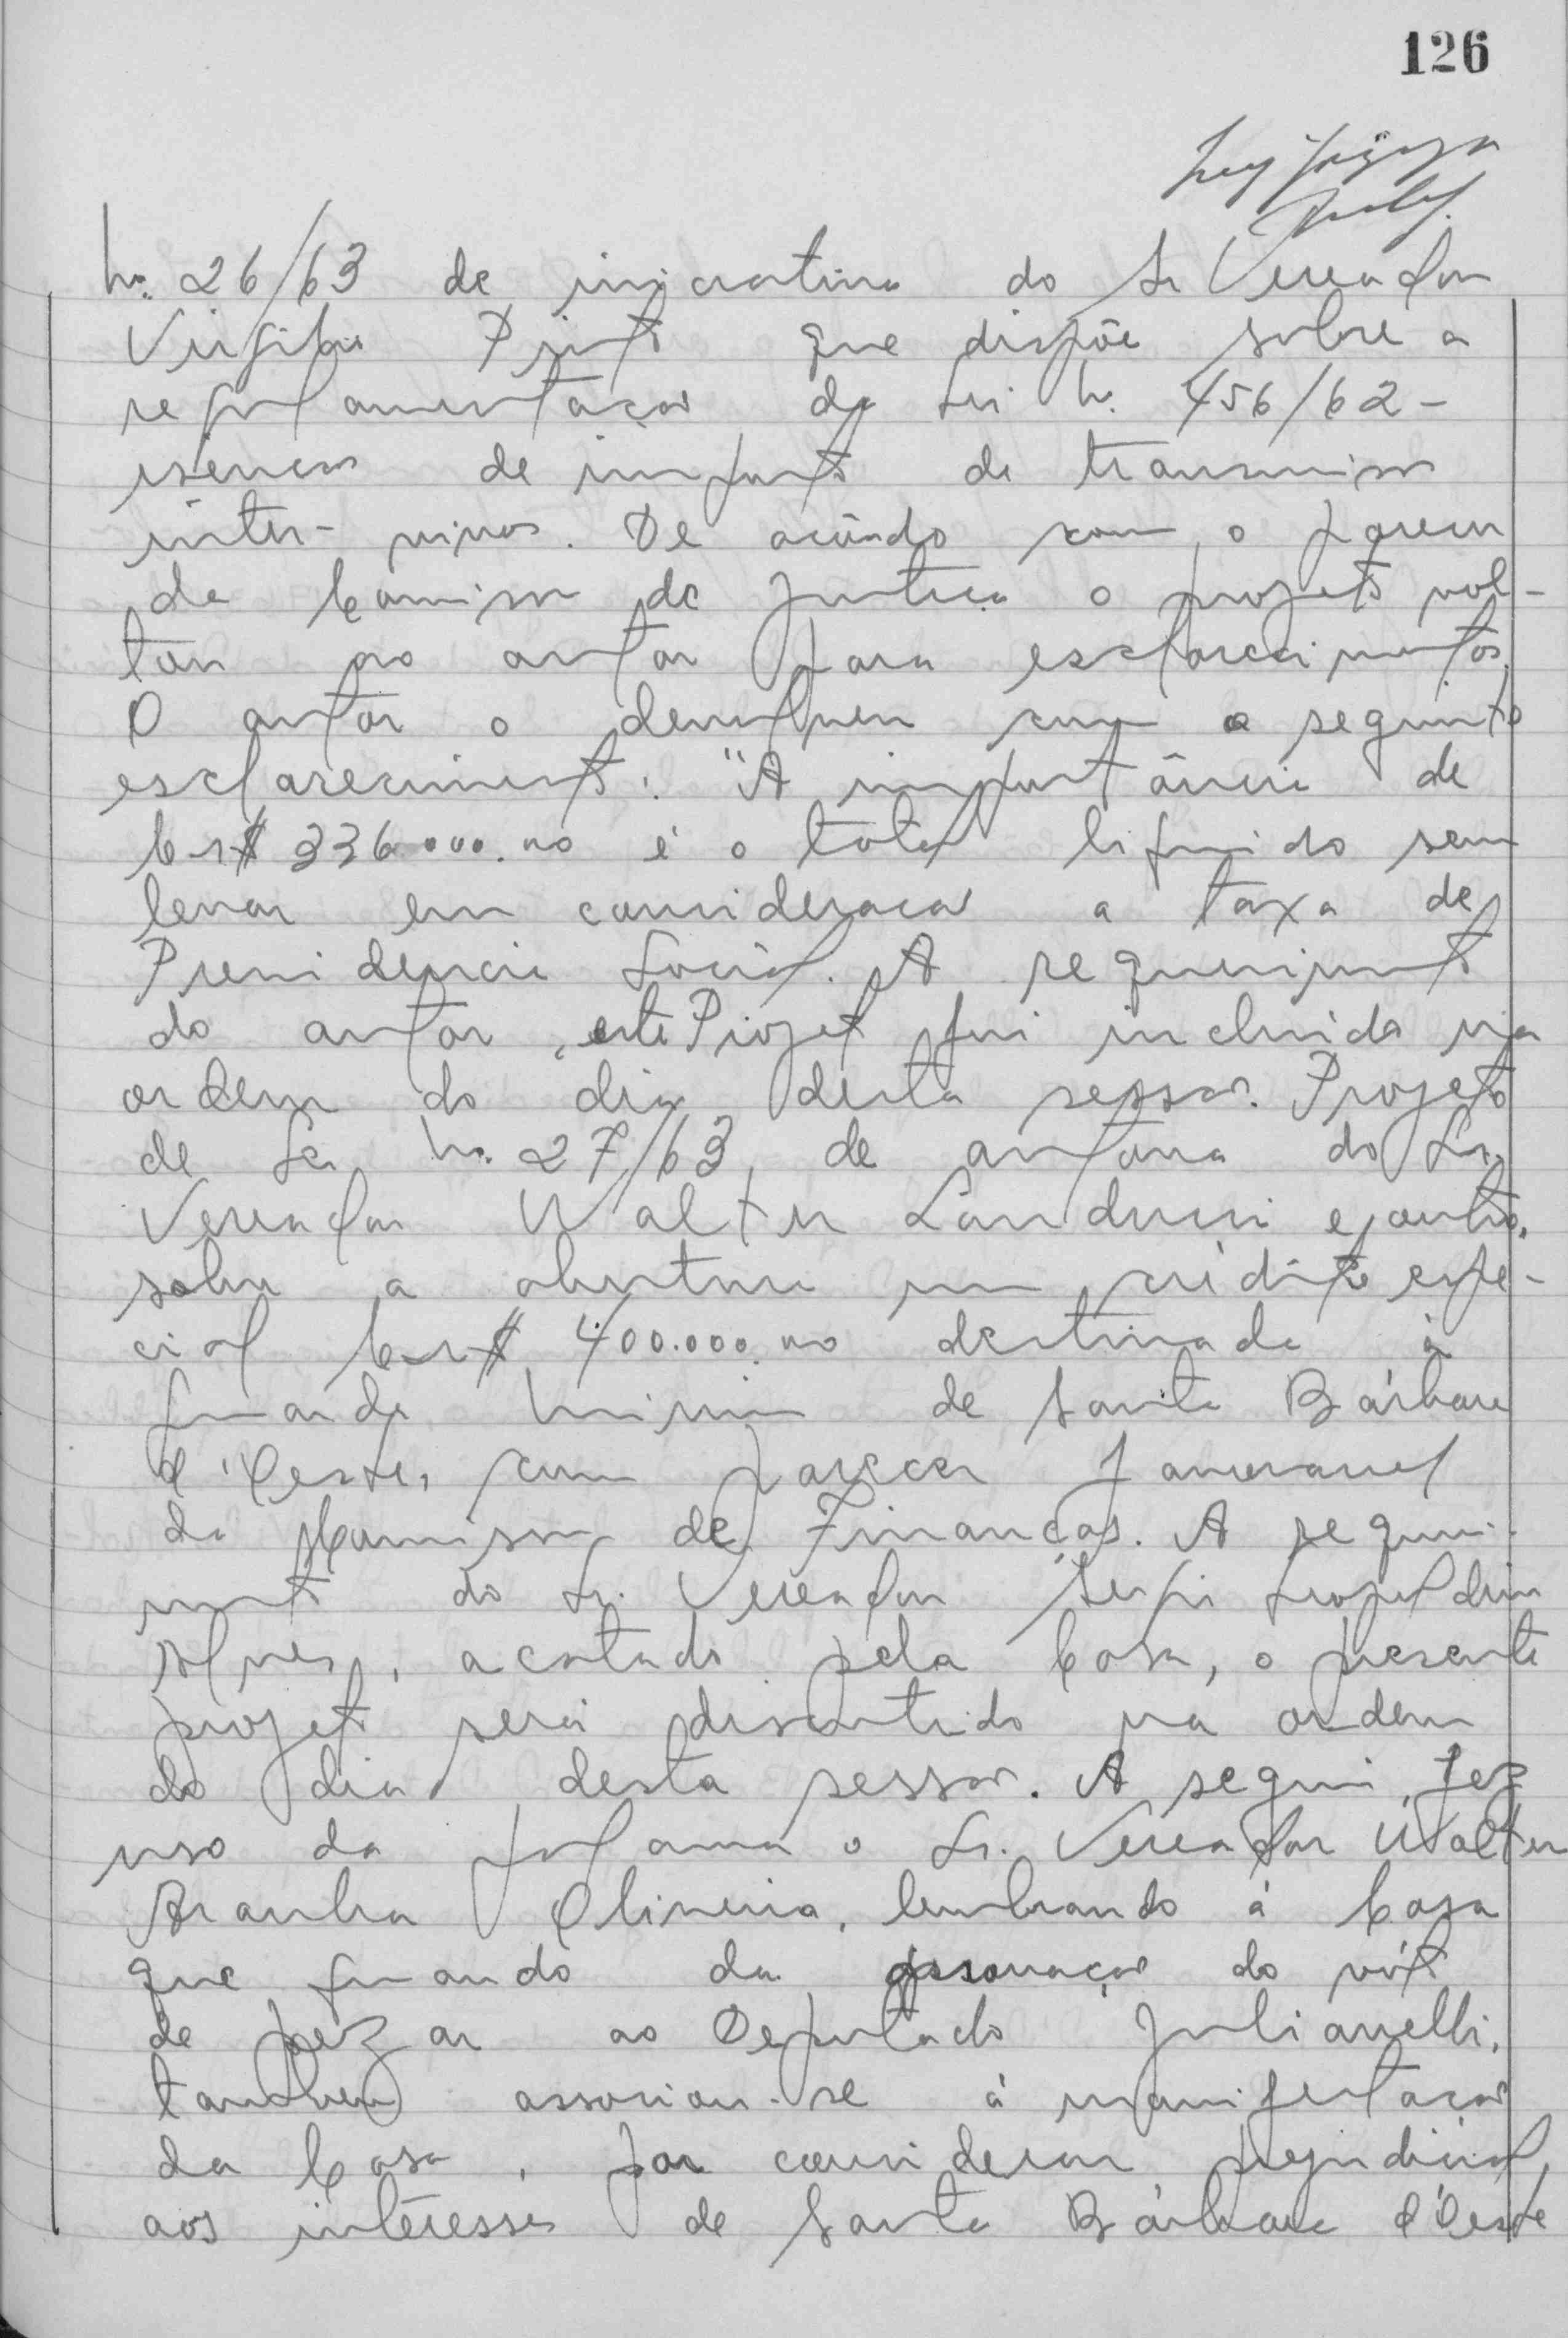 126
n.º 26/63 de iniciativa do Sr Vereador
Virgilio Pinto que dispõe sobre a
regulamentação da Lei n. 456/62 -
isenção de imposto de transmissão
inter-vivos. De acôrdo com o parecer
da Comissão de Justiça o projeto vol-
tou ao autor para esclarecimentos.
O autor o devolveu com o seguinte
esclarecimento: "A importância de
Cr$ 336.000.00 é o total liquido sem
levar em consideração a taxa de
Previdencia Social. A requerimento
do autor, este Projeto foi incluido na
ordem do dia desta sessão. Projeto
de Lei n.º 27/63, de autoria do Sr.
Vereador Walter Landucci e outro,
sobre a abertura um crédito espe-
cial Cr$ 400.000.00 destinado à
Guarda Mirim de Santa Bárbara
d'Oeste, com parecer favoravel
da Comissão de Finanças. A requeri-
mento do Sr. Vereador Sergio Leopoldino
Alves, acatado pela Casa, o presente
projeto será discutido na ordem
do dia desta sessão. A seguir, fez
uso da palavra o Sr. Vereador Walter
Aranha Oliveira, lembrando á Casa
que quando da aprovação do vóto
de pezar ao Deputado Julianelli,
tambem associou-se á manifestação
da Casa, por considerar prejudicial
aos interêsses de Santa Bárbara d'Oeste